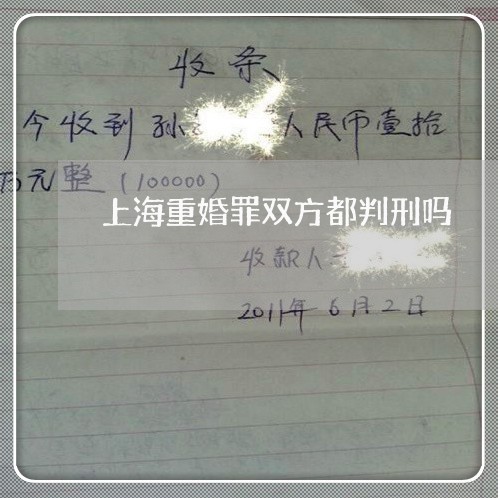 收条
今收到孙 人民币壹拾
万元整(100000)
上海重婚罪双方都判刑吗
收款人
2011年6月2日